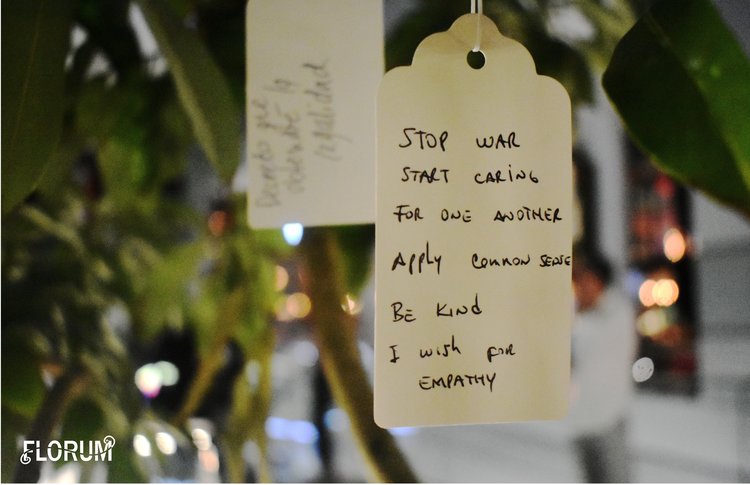 STOP WAR
START CARING
FOR ONE ANOTHER
APPLY COMMON SENSE
BE KIND
I WISH FOR
EMPATHY
FLORUM